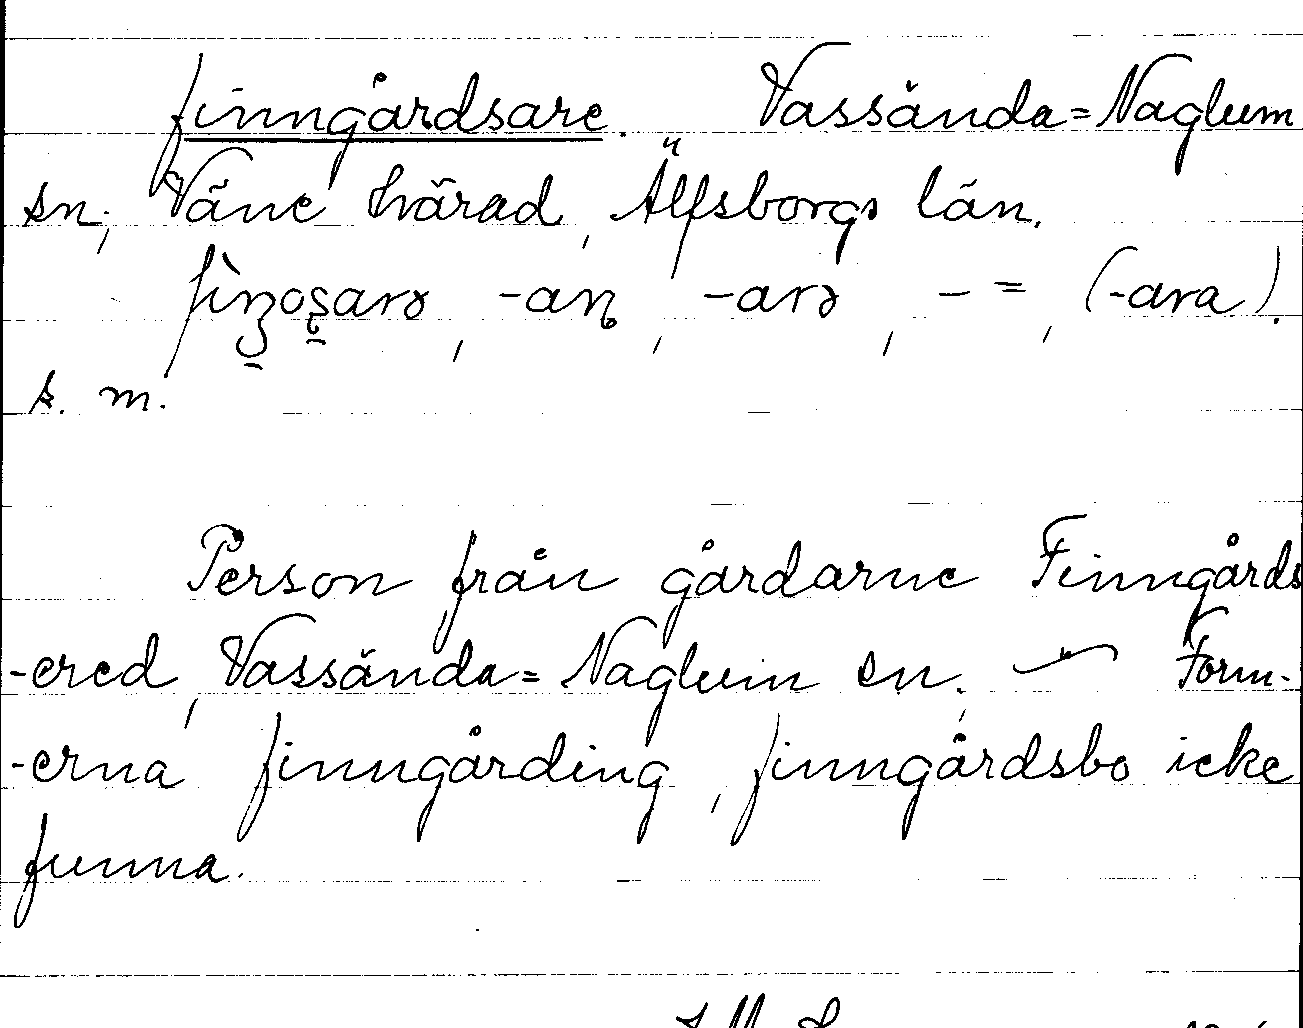 finngårdsare. Vassända=Naglum
sn, Väne härad, Älfsborgs län.
-an, -arə, - =, (-ara).
s. m.
Person från gårdarne Finngårds
-ered, Vassända=Naglum sn. — Form-
-erna finngårding, finngårdsbo icke
funna.